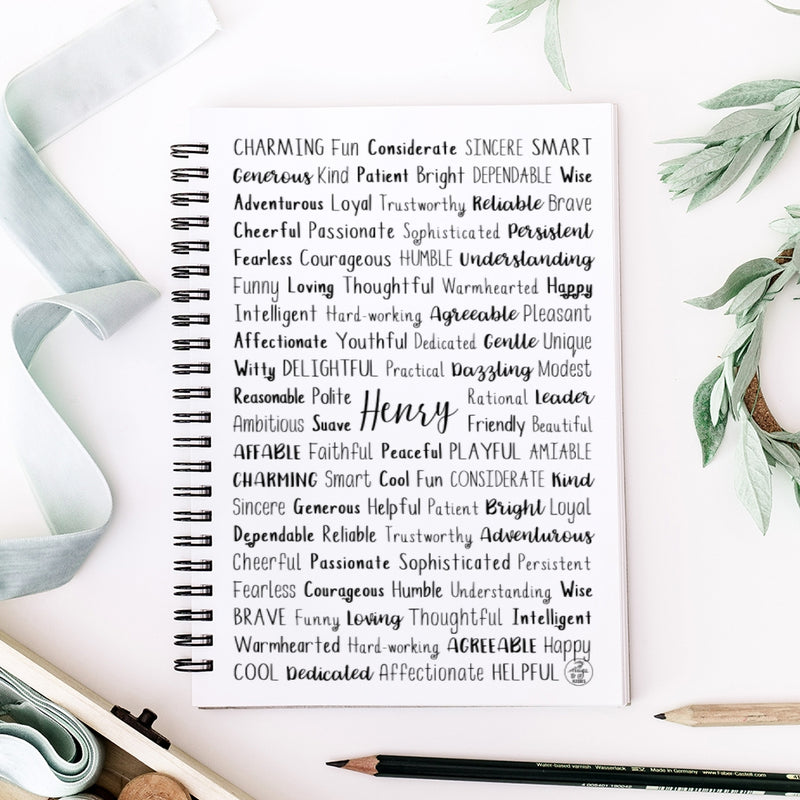 CHARMING Fun Considerate SINCERE SMART
Generous Kind Patient Bright DEPENDABLE Wise
Adventurous Loyal Trustworthy Reliable Brave
Cheerful Passionate Sophisticated Persistent
Fearless Courageous HUMBLE Understanding
Funny Loving Thoughtful Warmhearted Happy
Intelligent Hard-working Agreeable Pleasant
Affectionate Youthful Dedicated Gentle Unique
Witty DELIGHTFUL Practical Dazzling Modest
Reasonable Polite Rational Leader
Henry
Ambitious Suave Friendly Beautiful
AFFABLE Faithful Peaceful PLAYFUL AMIABLE
CHARMING Smart Cool Fun CONSIDERATE Kind
Sincere Generous Helpful Patient Bright Loyal
Dependable Reliable Trustworthy Adventurous
Cheerful Passionate Sophisticated Persistent
Fearless Courageous Humble Understanding Wise
BRAVE Funny Loving Thoughtful Intelligent
Warmhearted Hard-working AGREEABLE Happy
COOL Dedicated Affectionate HELPFUL
Water-based varnish Wasserlack Made in Germany www.Faber-Castell.com